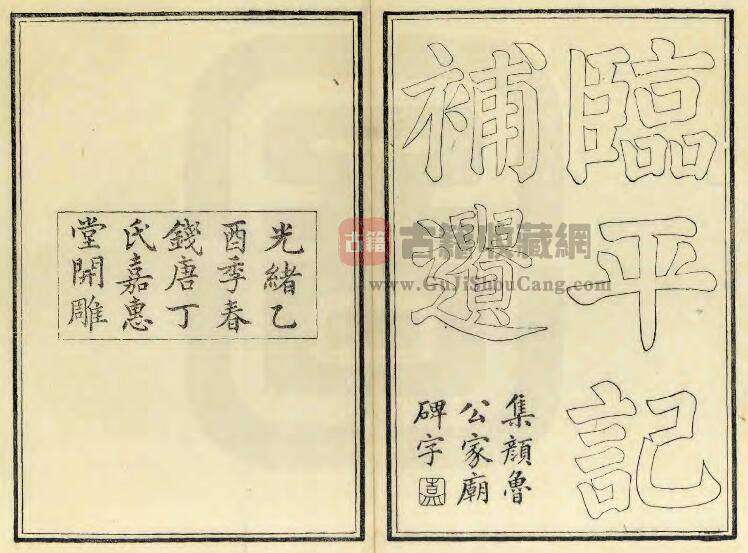 臨平記
補遺
集顏魯
公家廟
碑字
光緒乙
酉季春
錢唐丁
氏嘉惠
堂開雕
古籍 古籍收藏網
www.GuJiShouCang.com